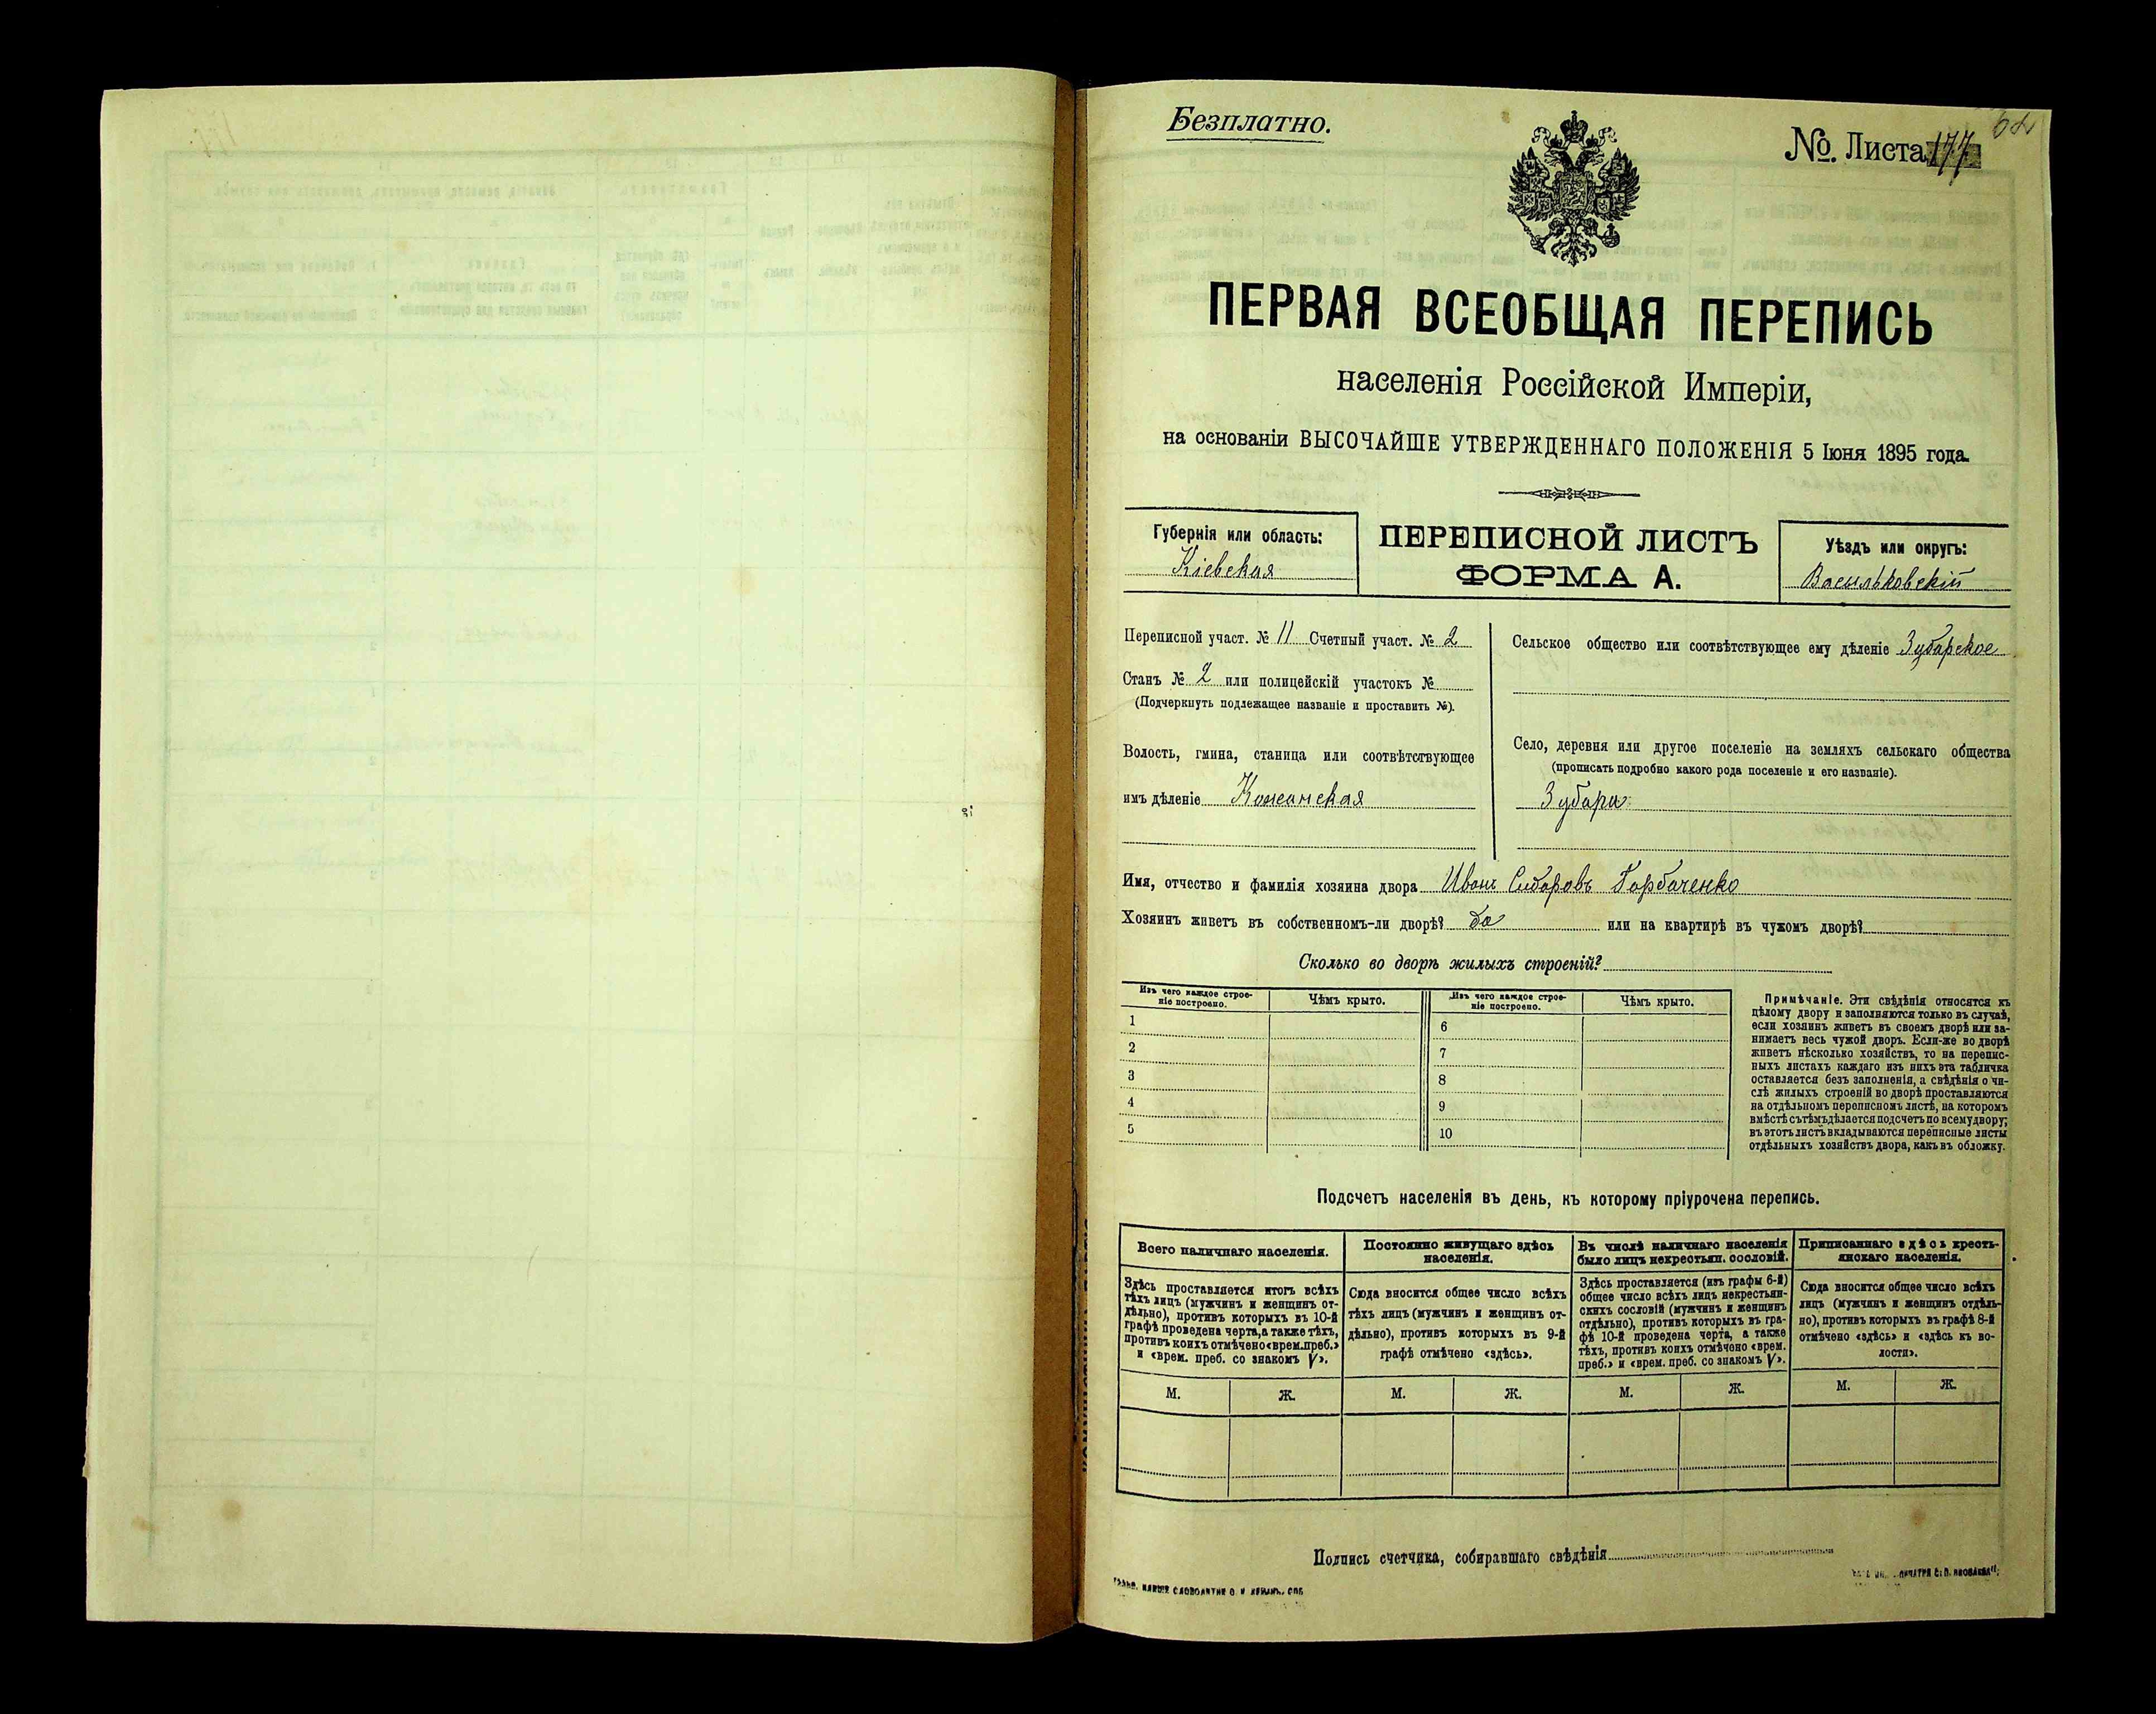 Безплатно.
№. Листа 177
ПЕРВАЯ ВСЕОБЩАЯ ПЕРЕПИСЬ
населенія Россійской Имперіи,
на основаніи ВЫСОЧАЙШЕ УТВЕРЖДЕННАГО ПОЛОЖЕНІЯ 5 Іюня 1895 года.
Губернія или область:
Кіевская
ПЕРЕПИСНОЙ ЛИСТЪ
ФОРМА А.
Уѣздъ или округъ:
Васильковскій
Переписной участ. № 11 Счетный участ. № 2
Станъ № 2 или полицейскій участокъ №
(Подчеркнуть подлежащее названіе и проставить №).
Волость, гмина, станица или соотвѣтствующее
имъ дѣленіе Кожанская
Сельское общество или соотвѣтствующее ему дѣленіе Зубарское
Село, деревня или другое поселеніе на земляхъ сельскаго общества
(прописать подробно какого рода поселеніе и его названіе).
Зубари
Имя, отчество и фамилія хозяина двора Иванъ Сидоровъ Горбаченко
Хозяинъ живетъ въ собственномъ-ли дворѣ? да или на квартирѣ въ чужомъ дворѣ?
Сколько во дворѣ жилыхъ строеній?
Изъ чего каждое строе-
ніе построено.
Чѣмъ крыто.
Изъ чего каждое строе-
ніе построено.
Чѣмъ крыто.
1
2
3
4
5
6
7
8
9
10
Примѣчаніе. Эти свѣдѣнія относятся къ
цѣлому двору и заполняются только въ случаѣ,
если хозяинъ живетъ въ своемъ дворѣ или за-
нимаетъ весь чужой дворъ. Если-же во дворѣ
живетъ нѣсколько хозяйствъ, то на перепис-
ныхъ листахъ каждаго изъ нихъ эта табличка
оставляется безъ заполненія, а свѣдѣнія о чи-
слѣ жилыхъ строеній во дворѣ проставляются
на отдѣльномъ переписномъ листѣ, на которомъ
вмѣстѣ съ тѣмъ дѣлается подсчетъ по всему двору;
въ этотъ листъ вкладываются переписные листы
отдѣльныхъ хозяйствъ двора, какъ въ обложку.
Подсчетъ населенія въ день, къ которому пріурочена перепись.
Всего наличнаго населенія.
Здѣсь проставляется итогъ всѣхъ
тѣхъ лицъ (мужчинъ и женщинъ от-
дѣльно), противъ которыхъ въ 10-й
графѣ проведена черта, а также тѣхъ,
противъ коихъ отмѣчено «врем. преб.»
и «врем. преб. со знакомъ V».
М.
Ж.
Постоянно живущаго здѣсь
населенія.
Сюда вносится общее число всѣхъ
тѣхъ лицъ (мужчинъ и женщинъ от-
дѣльно), противъ которыхъ въ 9-й
графѣ отмѣчено «здѣсь».
М.
Ж.
Въ числѣ наличнаго населенія
было лицъ некрестьян. сословій.
Здѣсь проставляется (изъ графы 6-й)
общее число всѣхъ лицъ некрестьян-
скихъ сословій (мужчинъ и женщинъ
отдѣльно), противъ которыхъ въ гра-
фѣ 10-й проведена черта, а также
тѣхъ, противъ коихъ отмѣчено «врем.
преб.» и «врем. преб. со знакомъ V».
М.
Ж.
Приписаннаго здѣсь кресть-
янскаго населенія.
Сюда вносится общее число всѣхъ
лицъ (мужчинъ и женщинъ отдѣль-
но), противъ которыхъ въ графѣ 8-й
отмѣчено «здѣсь» и «здѣсь къ во-
лости».
М.
Ж.
Подпись счетчика, собиравшаго свѣдѣнія